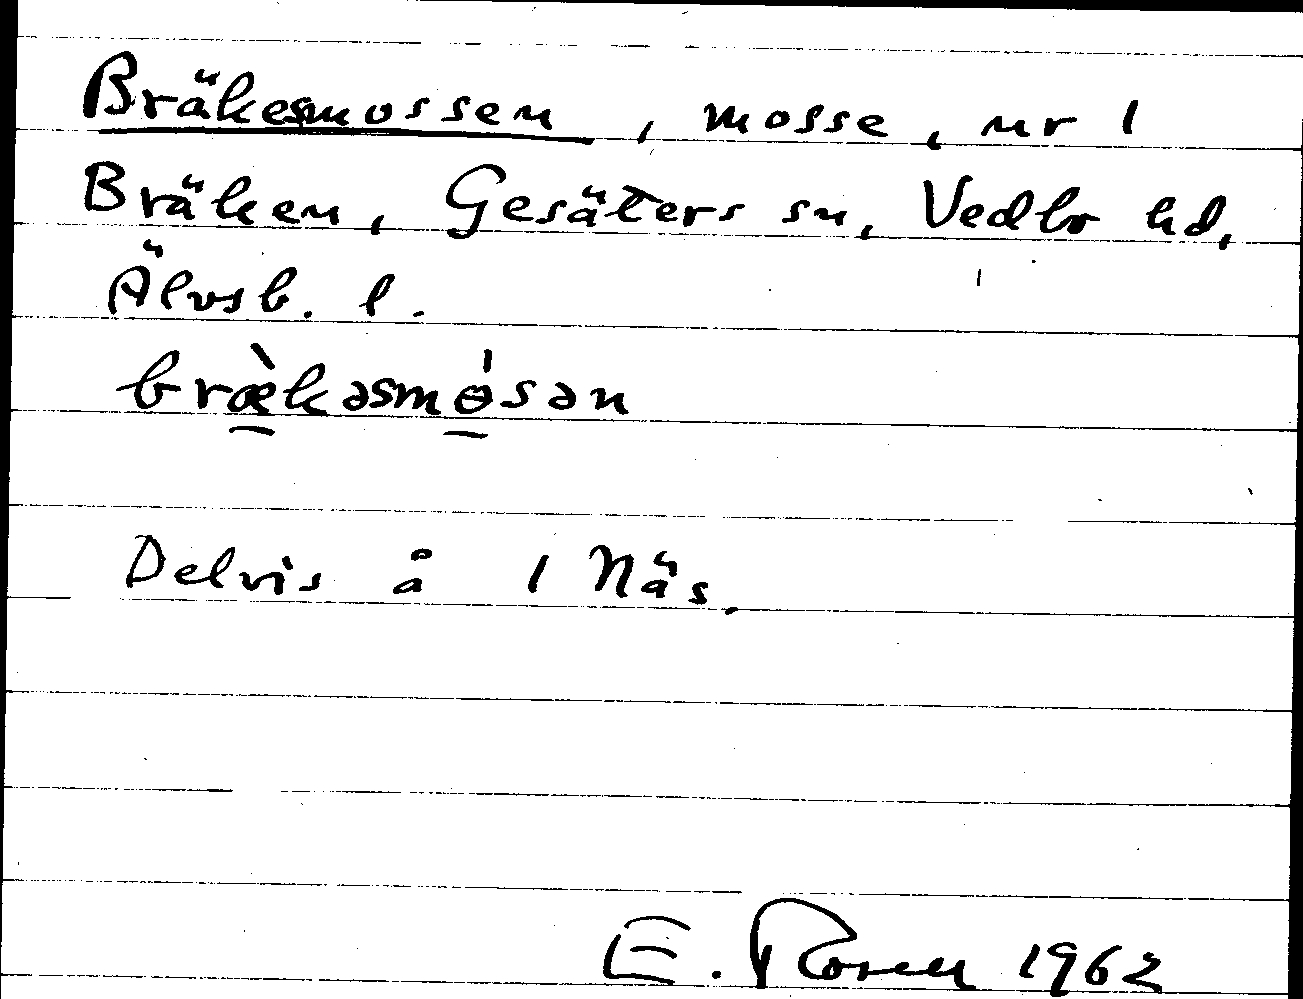 Bräkesmossen, mosse, nr 1
Bräken, Gesäters sn, Vedbo hd,
Älvsb. l.
bræ̀kəsmɵ́sən
Delvis å 1 Näs.
E. Rosell 1962